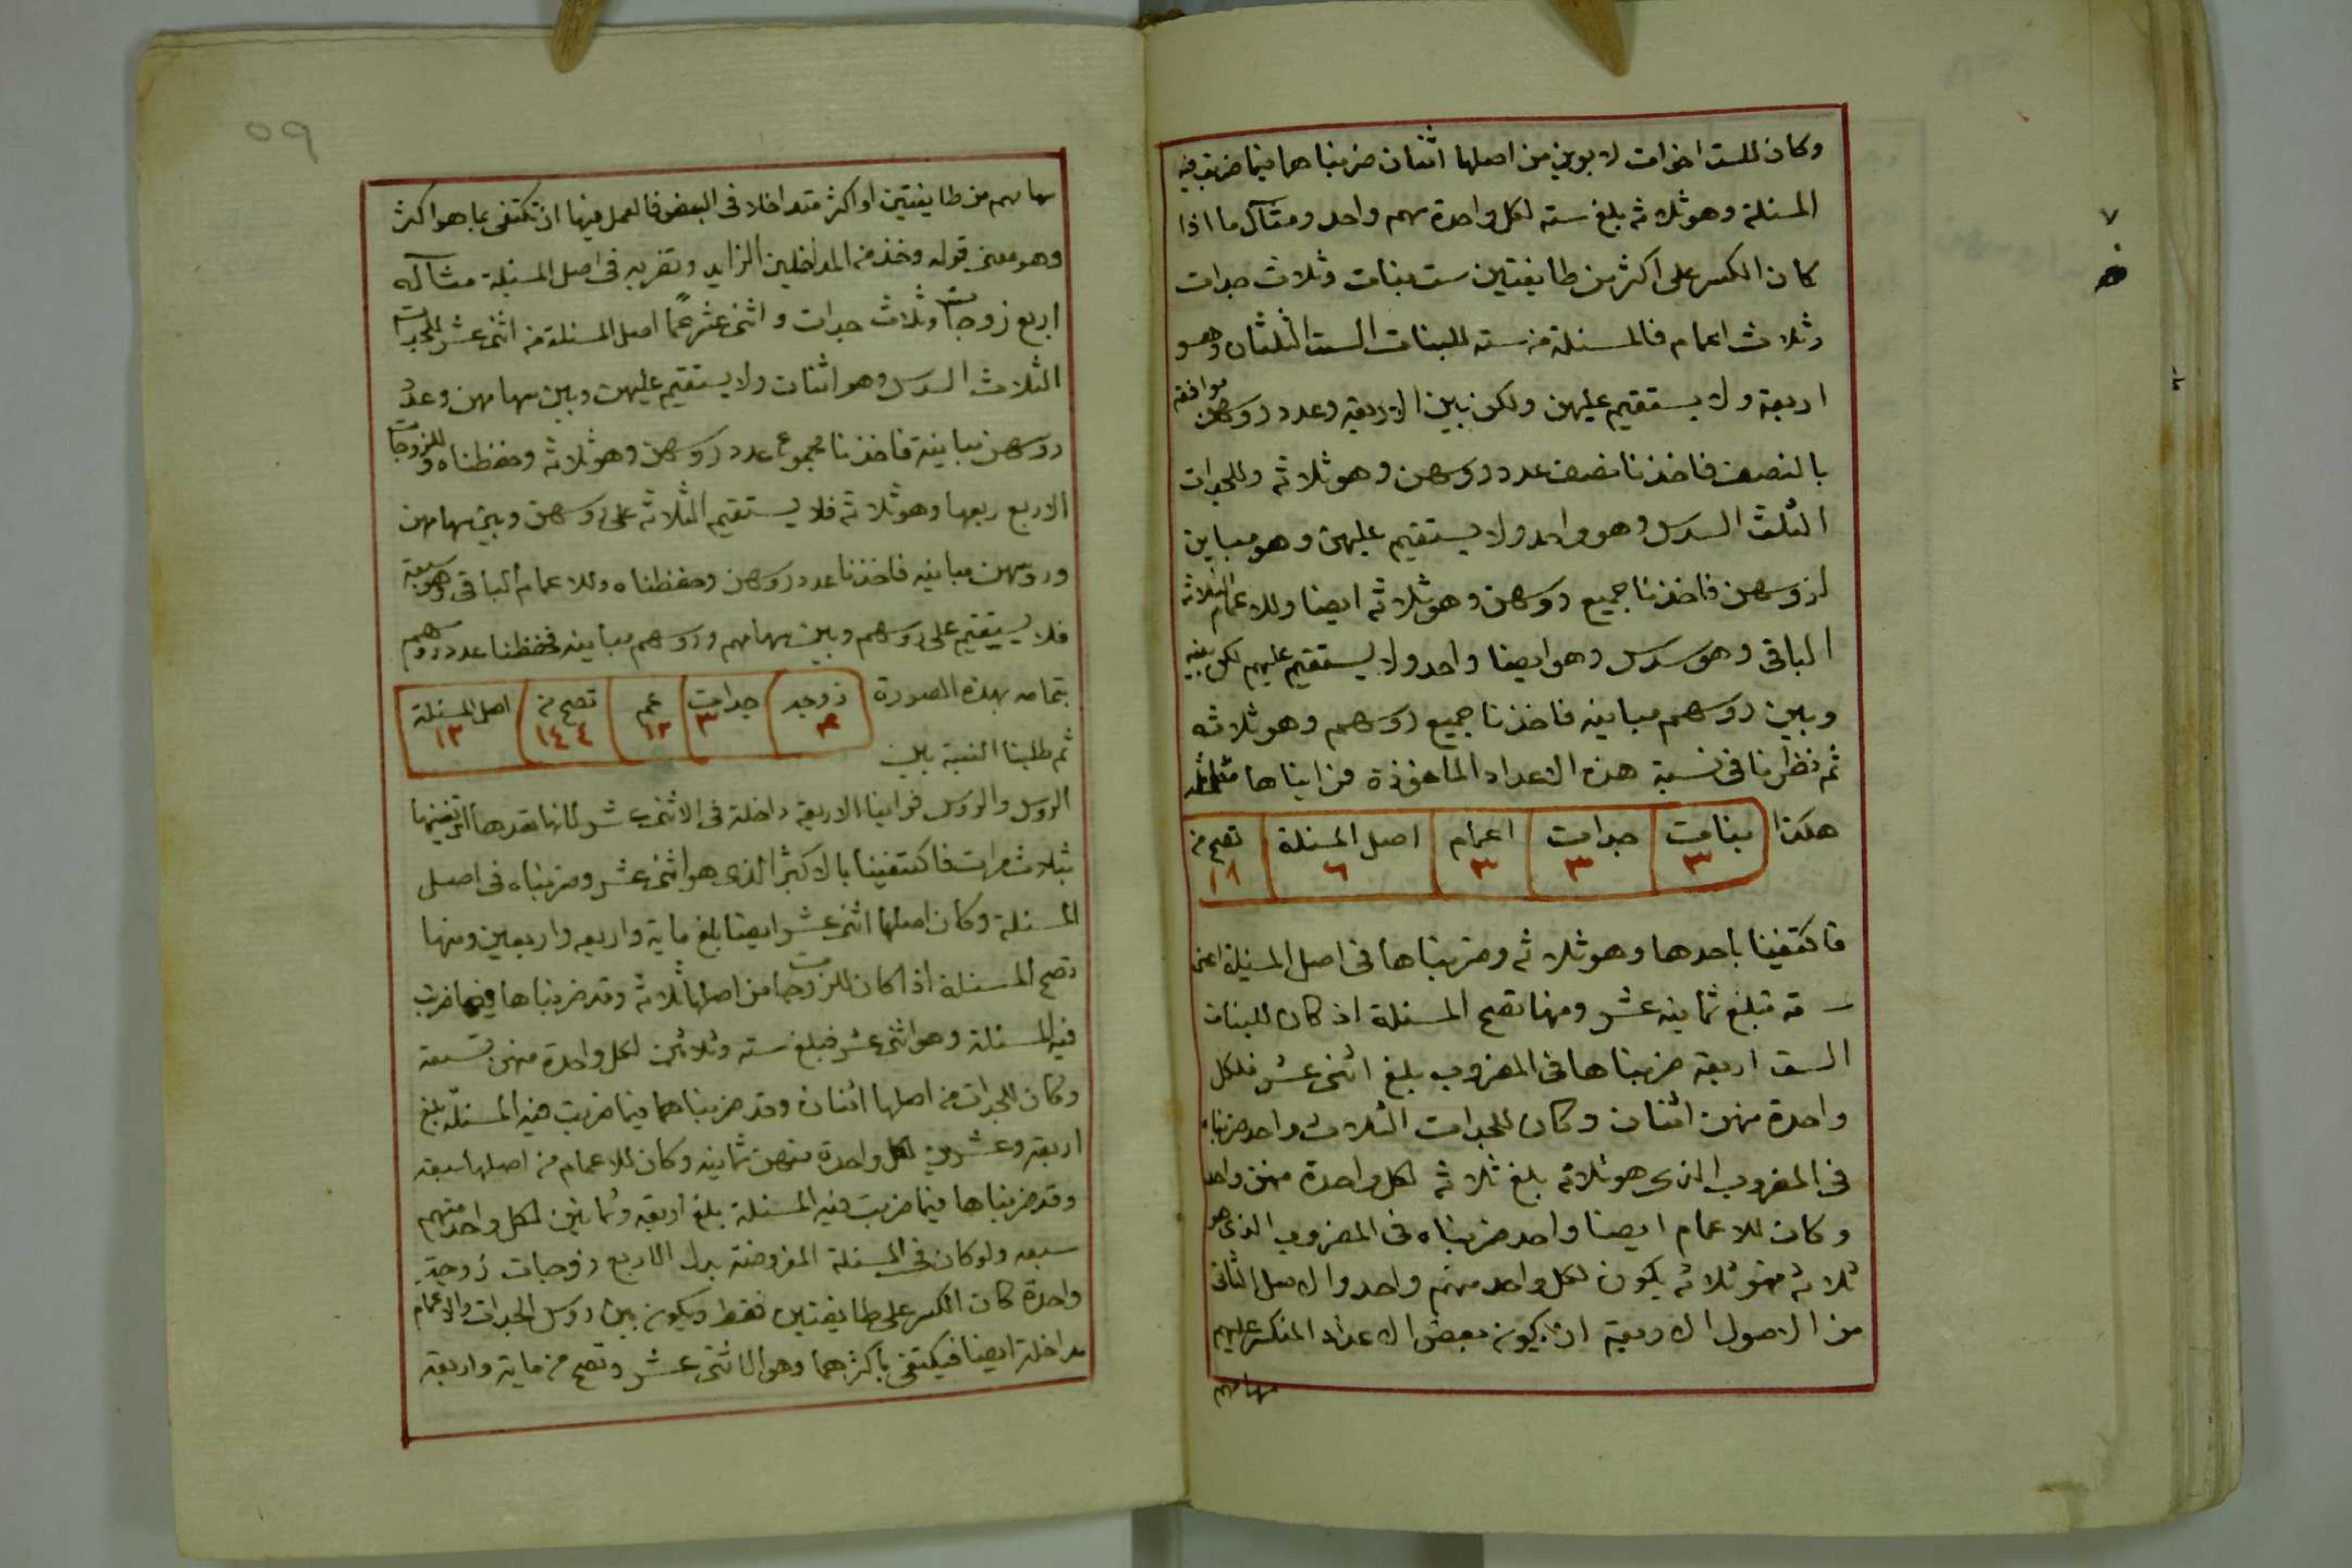 وكان للست اخوات لابوين من اصلها اثنان ضربناهما فيما ضرب فيه
المسئلة وهو ثلاثه بلغ سته لكل واحدة سهم واحد ومثال ما اذا
كان الكسر على اكثر من طايفتين ست بنات وثلاث جدات
وثلاث اعمام فالمسئلة من سته للبنات الست الثلثان وهو
اربعة ولا يستقيم عليهن ولكن بين الاربعة وعدد روسهن موافقه
بالنصف فاخذنا نصف عدد روسهن وهو ثلاثه وللجدات
الثلث السدس وهو واحد ولا يستقيم عليهن وهو مباين
لروسهن فاخذنا جميع روسهن وهو ثلاثه ايضا وللاعمام الثلاثه
الباقى وهو سدس وهو ايضا واحد ولا يستقيم عليهم لكن بينه
وبين روسهم مباينه فاخذنا جميع روسهم وهو ثلاثه
ثم نظرنا فى نسبة هذه الاعداد الماخوذة فرايناها متماثله
هكذا بنات ٣ جدات ٣ اعمام ٣ اصل المسئلة ٦ تصح من ١٨
فاكتفينا باحدها وهو ثلاثه وضربناها فى اصل المسئلة اعنى
سته تبلغ ثمانيه عشر ومنها تصح المسئلة اذ كان للبنات
الست اربعة ضربناها فى المضروب بلغ اثنى عشر فلكل
واحدة منهن اثنان وكان للجدات الثلاث واحد ضربناه
فى المضروب الذى هو ثلاثه بلغ ثلاثه لكل واحدة منهن واحد
وكان للاعمام ايضا واحد ضربناه فى المضروب الذى هو
ثلاثه فهو ثلاثه يكون لكل واحد منهم واحد والاصل الثانى
من الاصول الاربعة ان يكون بعض الاعداد المنكسر عليهم
سهامهم
٥٩
سهامهم من طايفتين او اكثر متداخلا فى البعض فالعمل فيها ان تكتفى بما هو اكثر
وهو معنى قوله وخذ من المداخلين الزايد وتضربه فى اصل المسئلة مثاله
اربع زوجات وثلاث جدات واثنى عشر عمًا اصل المسئلة من اثنى عشر للجدات
الثلاث السدس وهو اثنان ولا يستقيم عليهن وبين سهامهن وعدد
روسهن مباينة فاخذنا مجموع عدد روسهن وهو ثلاثه وحفظناه وللزوجات
الاربع ربعها وهو ثلاثه فلا يستقيم الثلاثه على روسهن وبين سهامهن
وروسهن مباينه فاخذنا عدد روسهن وحفظناه وللاعمام الباقى وهو سبعة
فلا يستقيم على روسهم وبين سهامهم وروسهم مباينه فحفظنا عدد روسهم
بتمامه بهذه الصورة زوجه ٤ جدات ٣ عم ١٢ تصح من ١٤٤ اصل المسئلة ١٢
ثم طلبنا النسبة بين
الروس والروس فراينا الاربعة داخلة فى الاثنى عشر لانها تعدها اى تفنيها
بثلاث مرات فاكتفينا بالاكبر الذى هو اثنى عشر وضربناه فى اصل
المسئلة وكان اصلها اثنى عشر ايضا بلغ مايه واربعه واربعين ومنها
تصح المسئلة اذا كان للزوجات من اصلها ثلاثه وقد ضربناها فيما ضربت
فيه المسئلة وهو اثنى عشر فبلغ سته وثلاثين لكل واحدة منهن تسعة
وكان للجدات من اصلها اثنان وقد ضربناهما فيما ضربت فيه المسئلة بلغ
اربعة وعشرين لكل واحدة منهن ثمانيه وكان للاعمام من اصلها سبعة
وقد ضربناها فيما ضربت فيه المسئلة بلغ اربعه وثمانين لكل واحد منهم
سبعه ولو كان فى المسئلة المفروضة بدل الاربع زوجات زوجة
واحدة كان الكسر على طايفتين فقط ويكون بين روس الجدات والاعمام
مداخلة ايضا فيكتفى باكثرهما وهو الاثنى عشر وتصح من مايه واربعة